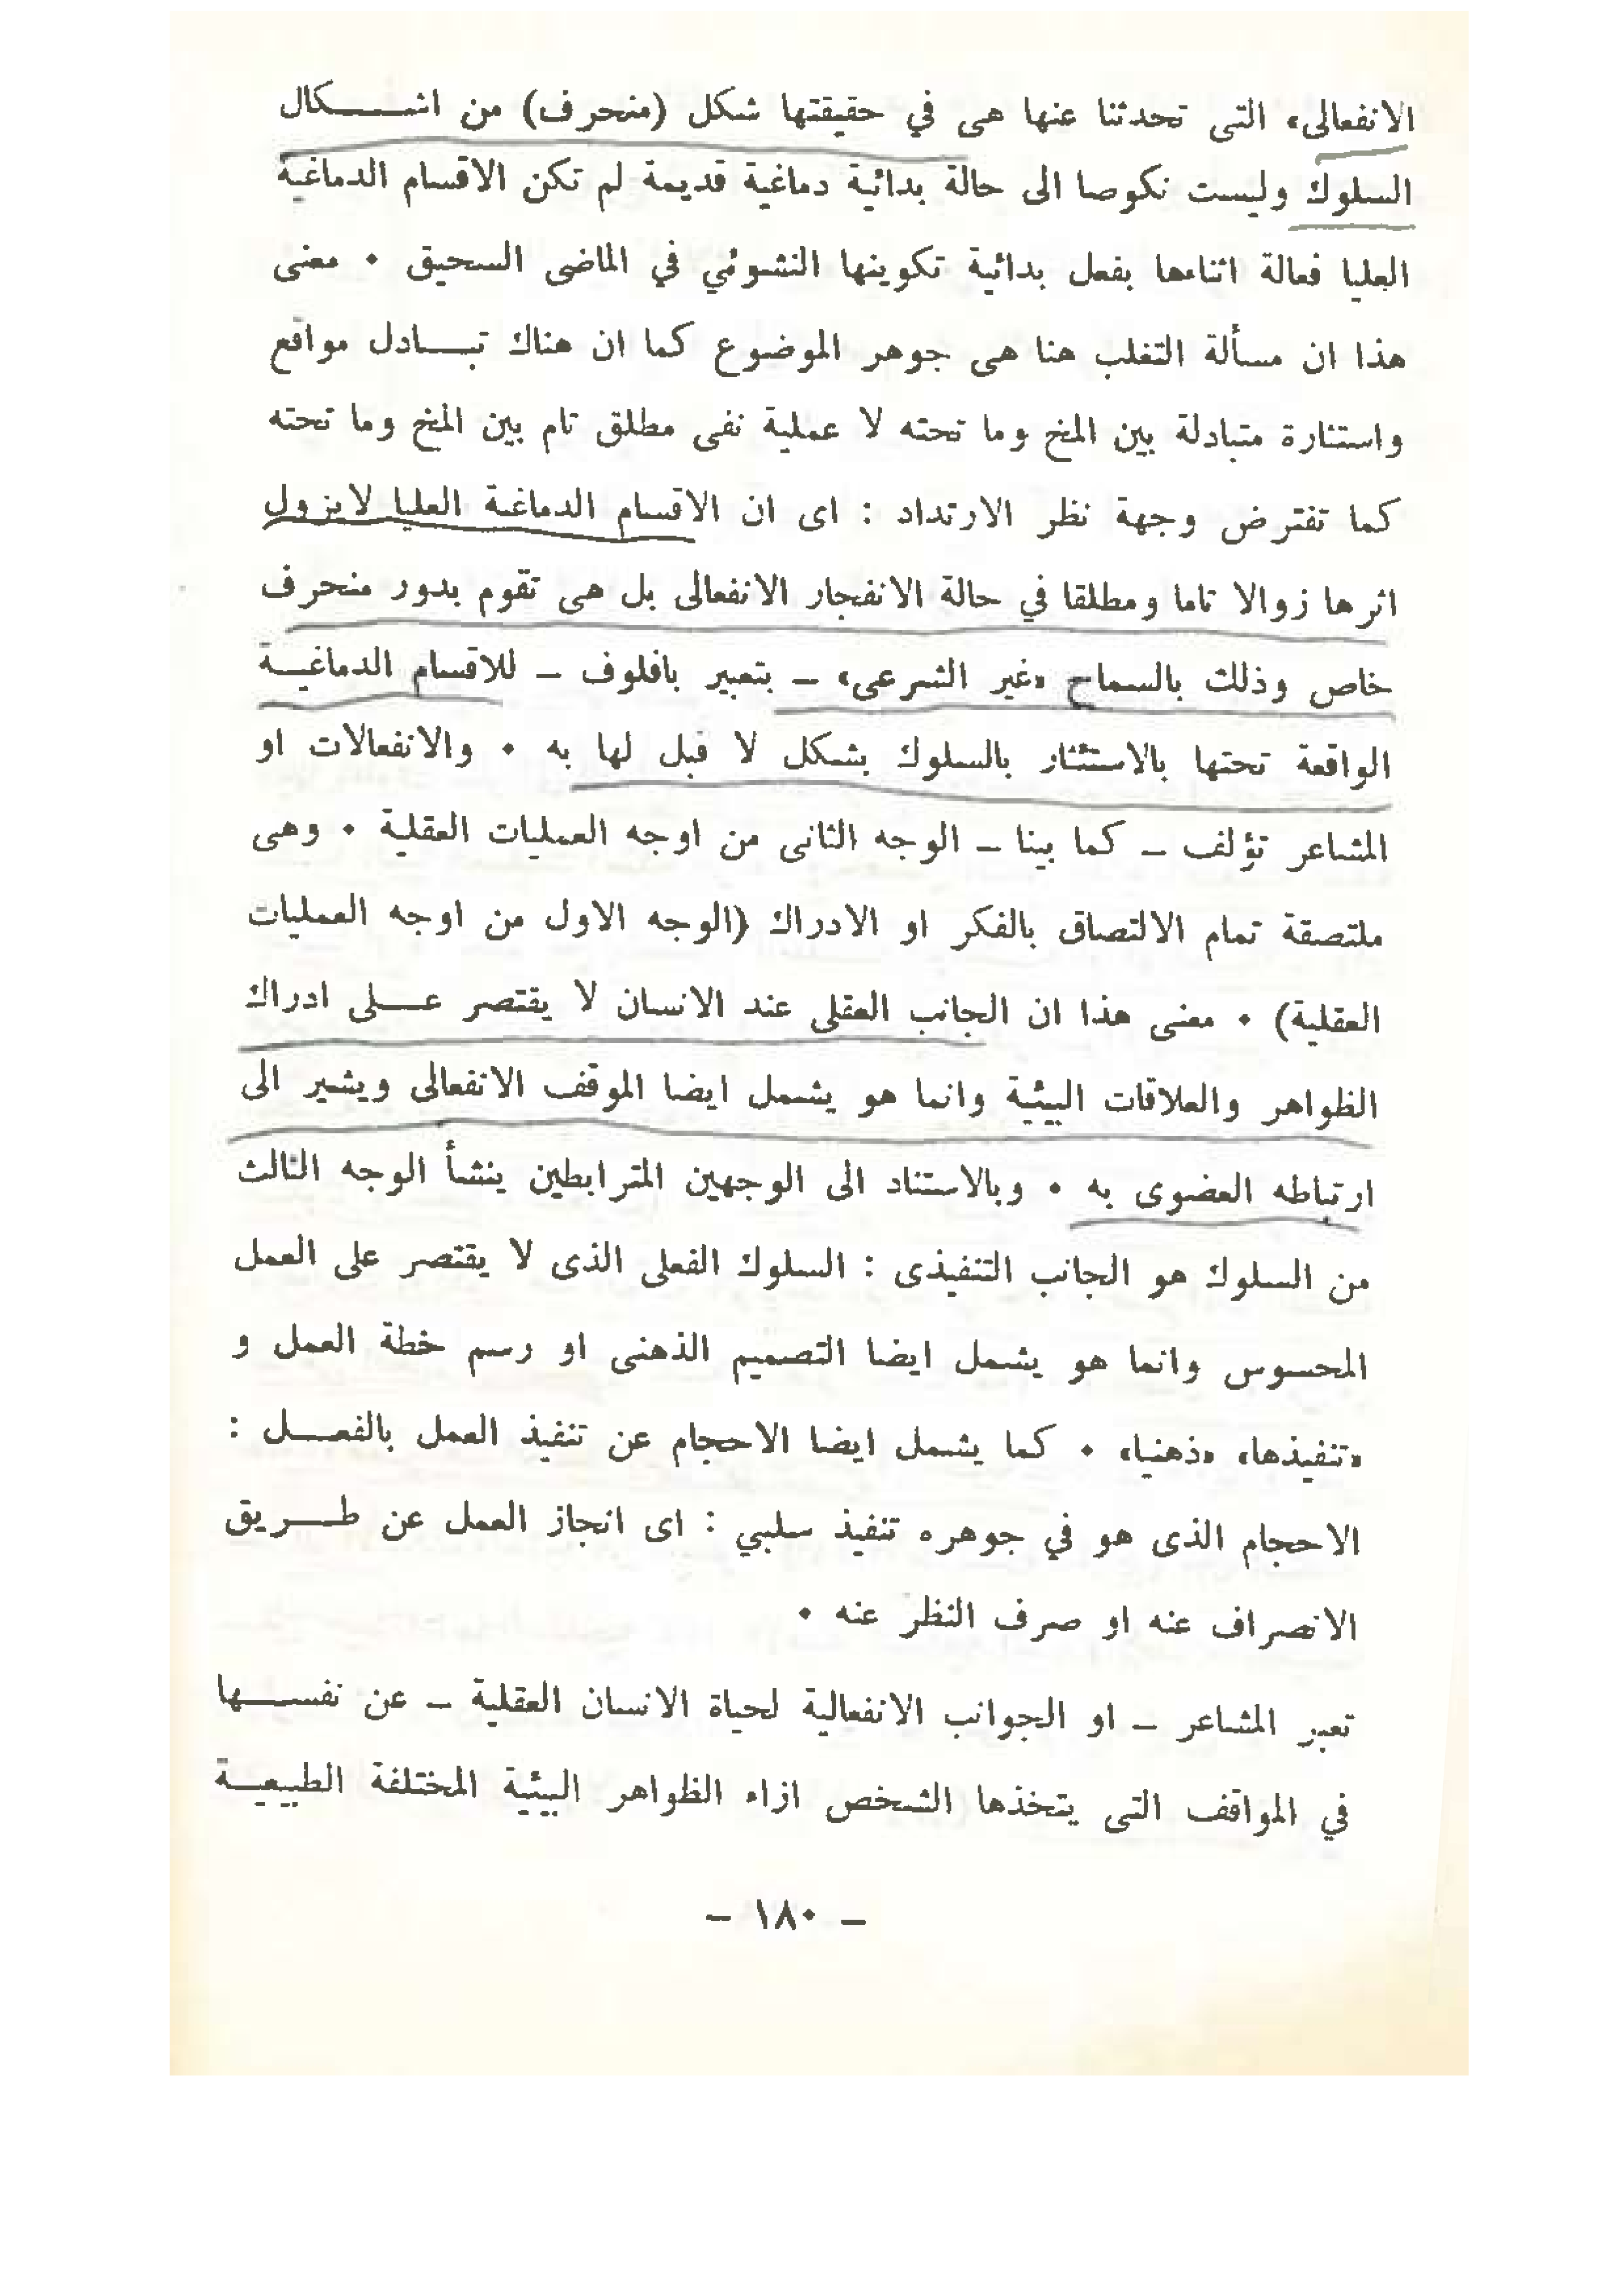 الانفعالى» التى تحدثنا عنها هى في حقيقتها شكل (منحرف) من اشـــكال
السلوك وليست نكوصا الى حالة بدائية دماغية قديمة لم تكن الاقسام الدماغية
العليا فعالة اثناءها بفعل بدائية تكوينها النشوئي في الماضى السحيق ٠ معنى
هذا ان مسألة التغلب هنا هى جوهر الموضوع كما ان هناك تبـــادل مواقع
واستثارة متبادلة بين المخ وما تحته لا عملية نفى مطلق تام بين المخ وما تحته
كما تفترض وجهة نظر الارتداد : اى ان الاقسام الدماغية العليا لايزول
اثرها زوالا تاما ومطلقا في حالة الانفجار الانفعالى بل هى تقوم بدور منحرف
خاص وذلك بالسماح «غير الشرعى» – بتعبير بافلوف – للاقسام الدماغيــة
الواقعة تحتها بالاستئثار بالسلوك بشكل لا قبل لها به ٠ والانفعالات او
المشاعر تؤلف – كما بينا – الوجه الثانى من اوجه العمليات العقلية ٠ وهى
ملتصقة تمام الالتصاق بالفكر او الادراك (الوجه الاول من اوجه العمليات
العقلية) ٠ معنى هذا ان الجانب العقلى عند الانسان لا يقتصر عـــلى ادراك
الظواهر والعلاقات البيئية وانما هو يشمل ايضا الموقف الانفعالى ويشير الى
ارتباطه العضوى به ٠ وبالاستناد الى الوجهين المترابطين ينشأ الوجه الثالث
من السلوك هو الجانب التنفيذى : السلوك الفعلى الذى لا يقتصر على العمل
المحسوس وانما هو يشمل ايضا التصميم الذهنى او رسم خطة العمل و
«تنفيذها» «ذهنيا» ٠ كما يشمل ايضا الاحجام عن تنفيذ العمل بالفعـــل :
الاحجام الذى هو في جوهره تنفيذ سلبي : اى انجاز العمل عن طـــريق
الانصراف عنه او صرف النظر عنه ٠
تعبر المشاعر – او الجوانب الانفعالية لحياة الانسان العقلية – عن نفســـها
في المواقف التى يتخذها الشخص ازاء الظواهر البيئية المختلفة الطبيعيــة
– ١٨٠ –